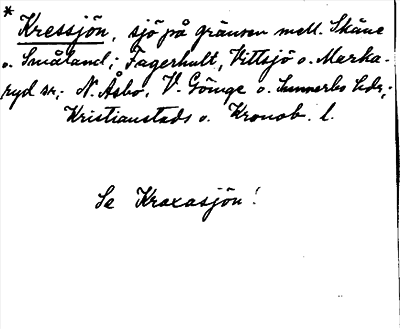 * Kressjön, sjö på gränsen mell. Skåne
o. Småland; Fagerhult, Vittsjö o. Marka-
ryd sn; N. Åsbo, V. Göinge o. Sunnerbo hdr;
Kristianstads o. Kronob. l.
Se Kraxasjön!